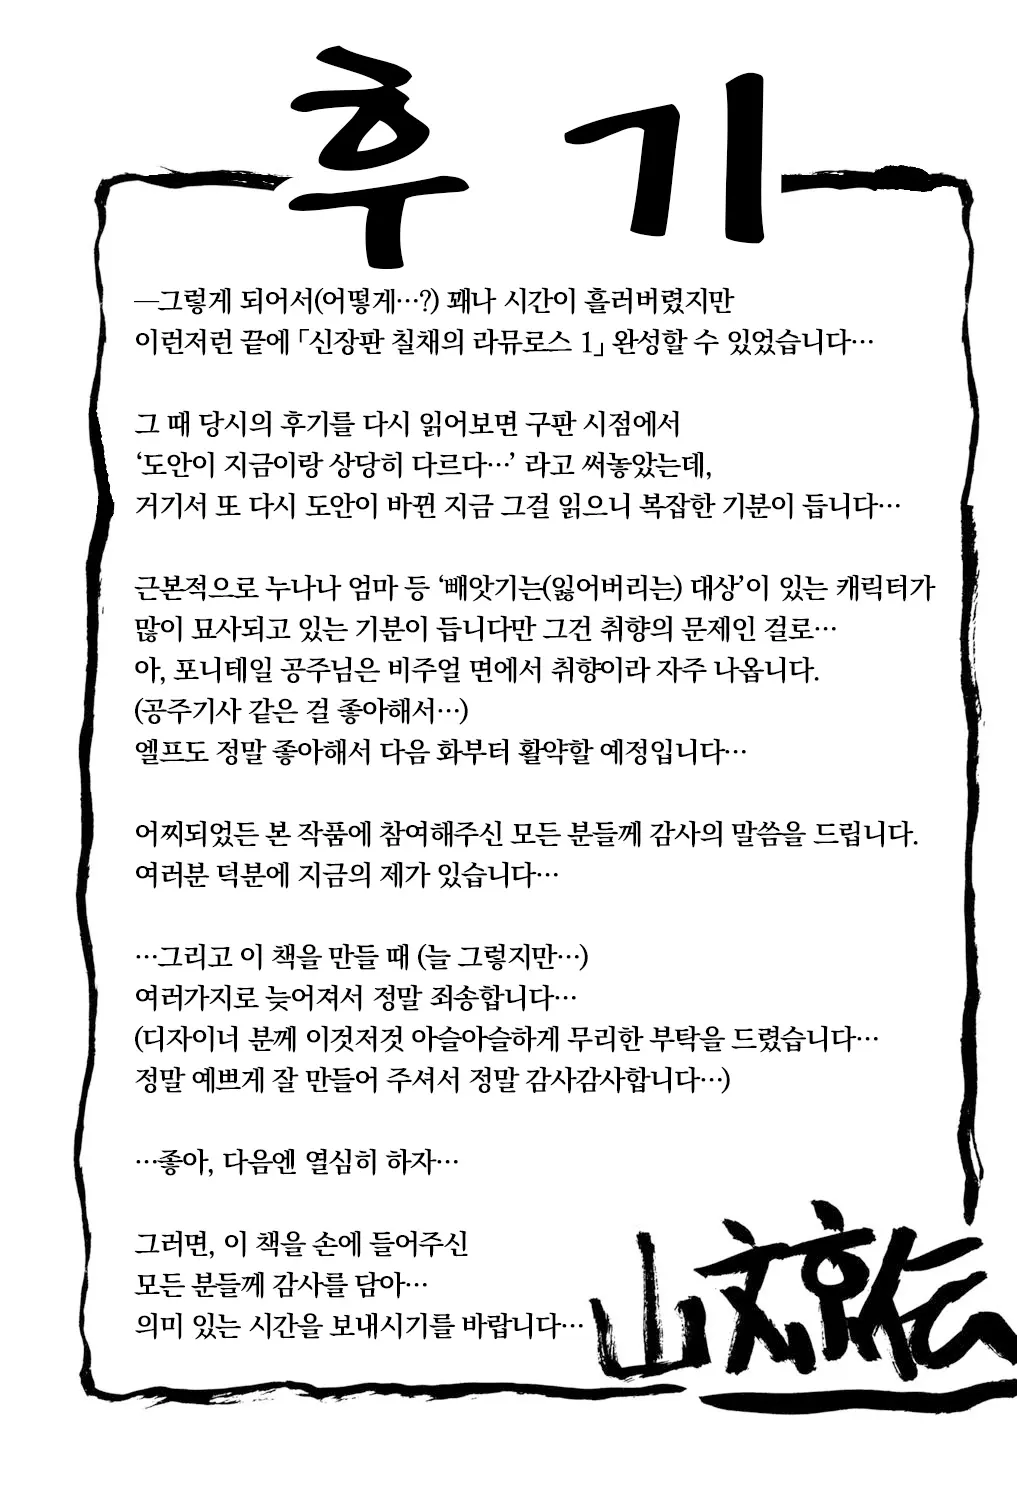 후기
—그렇게 되어서(어떻게…?) 꽤나 시간이 흘러버렸지만
이런저런 끝에 「신장판 칠채의 라뮤로스 1」 완성할 수 있었습니다…
그 때 당시의 후기를 다시 읽어보면 구판 시점에서
‘도안이 지금이랑 상당히 다르다…’ 라고 써놓았는데,
거기서 또 다시 도안이 바뀐 지금 그걸 읽으니 복잡한 기분이 듭니다…
근본적으로 누나나 엄마 등 ‘빼앗기는(잃어버리는) 대상’이 있는 캐릭터가
많이 묘사되고 있는 기분이 듭니다만 그건 취향의 문제인 걸로…
아, 포니테일 공주님은 비주얼 면에서 취향이라 자주 나옵니다.
(공주기사 같은 걸 좋아해서…)
엘프도 정말 좋아해서 다음 화부터 활약할 예정입니다…
어찌되었든 본 작품에 참여해주신 모든 분들께 감사의 말씀을 드립니다.
여러분 덕분에 지금의 제가 있습니다…
…그리고 이 책을 만들 때 (늘 그렇지만…)
여러가지로 늦어져서 정말 죄송합니다…
(디자이너 분께 이것저것 아슬아슬하게 무리한 부탁을 드렸습니다…
정말 예쁘게 잘 만들어 주셔서 정말 감사감사합니다…)
…좋아, 다음엔 열심히 하자…
그러면, 이 책을 손에 들어주신
모든 분들께 감사를 담아…
의미 있는 시간을 보내시기를 바랍니다…
山文京伝